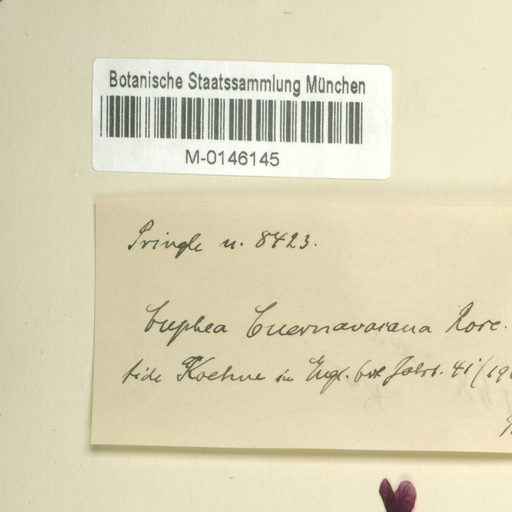 Botanische Staatssammlung München
M-0146145
Pringle n. 8423.
Cuphea Cuernavacana Rose.
fide Koehne in Engl. bot Jahrb. 41/(19